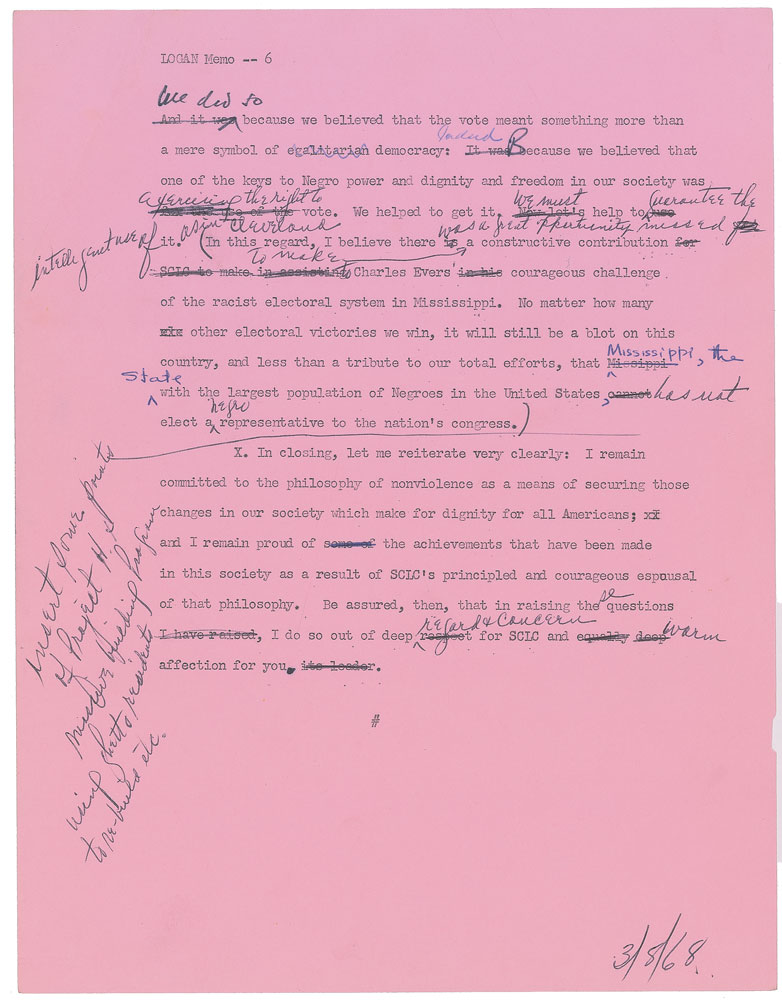 LOGAN Memo -- 6
We did so
And it was because we believed that the vote meant something more than
Indeed B
a mere symbol of egalitarian democracy: It was because we believed that
one of the keys to Negro power and dignity and freedom in our society was
exercising the right to We must guarantee the
for the use of the vote. We helped to get it. Now let's help to use
intelligent use of as in Cleveland was a great opportunity missed
it. (In this regard, I believe there is a constructive contribution for
to make
SCLC to make in assisting to Charles Evers' in his courageous challenge
of the racist electoral system in Mississippi. No matter how many
xix other electoral victories we win, it will still be a blot on this
Mississippi, the
country, and less than a tribute to our total efforts, that Missippi
State
with the largest population of Negroes in the United States, cannot has not
negro
elect a representative to the nation's congress.)
X. In closing, let me reiterate very clearly: I remain
committed to the philosophy of nonviolence as a means of securing those
changes in our society which make for dignity for all Americans; xX
and I remain proud of some of the achievements that have been made
in this society as a result of SCLC's principled and courageous espousal
se
of that philosophy. Be assured, then, that in raising the questions
regard & concern
I have raised, I do so out of deep respect for SCLC and equally deep warm
affection for you. its leader.
#
insert some points
of Project H. &
massive building program
using ghetto residents
to re-build etc.
3/8/68.